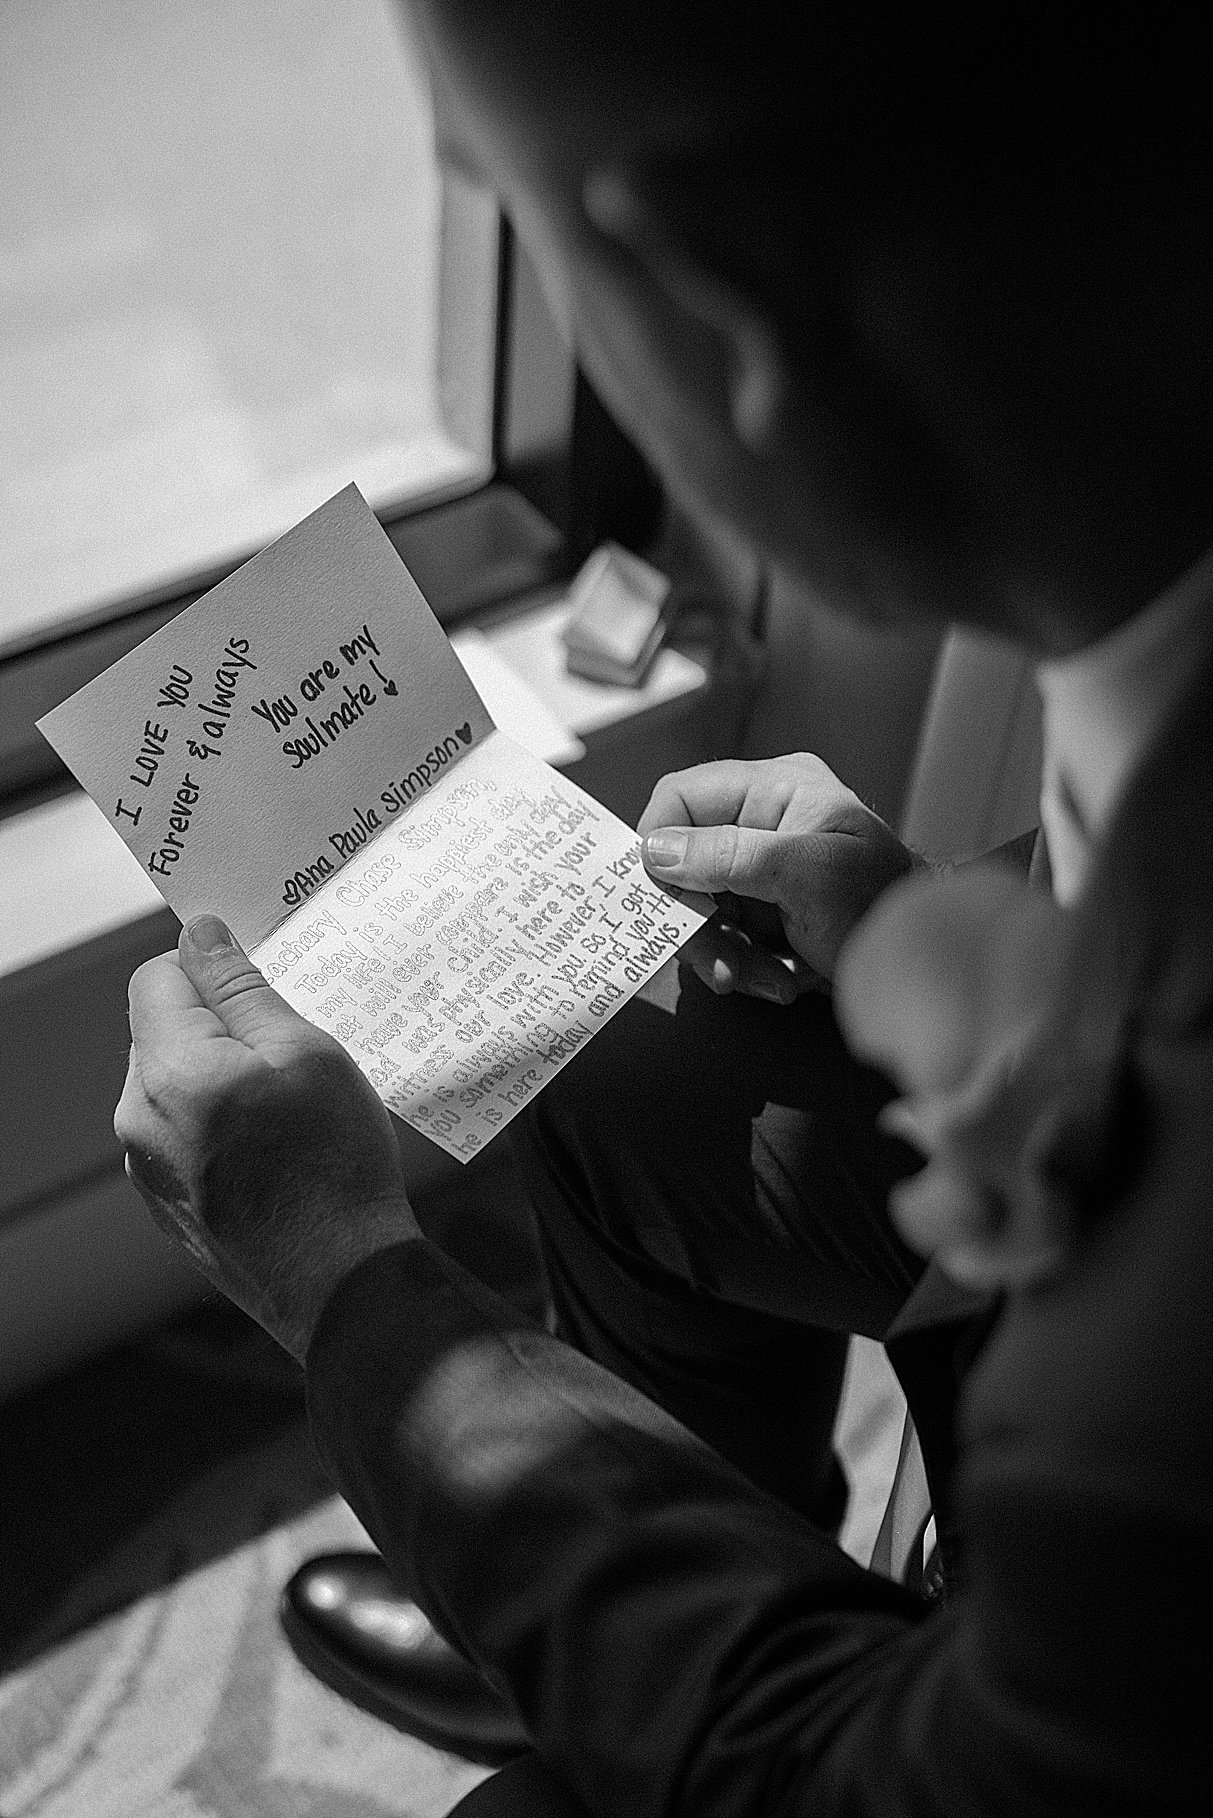 I LOVE YOU
Forever & always
You are my
soulmate!
Ana Paula Simpson
Zachary Chase Simpson,
Today is the happiest day
of my life! I believe the only day
that will ever compare is the day
I have your child. I wish your
dad was physically here to
witness our love. However, I know
he is always with you, so I got
you something to remind you that
he is here today and always.